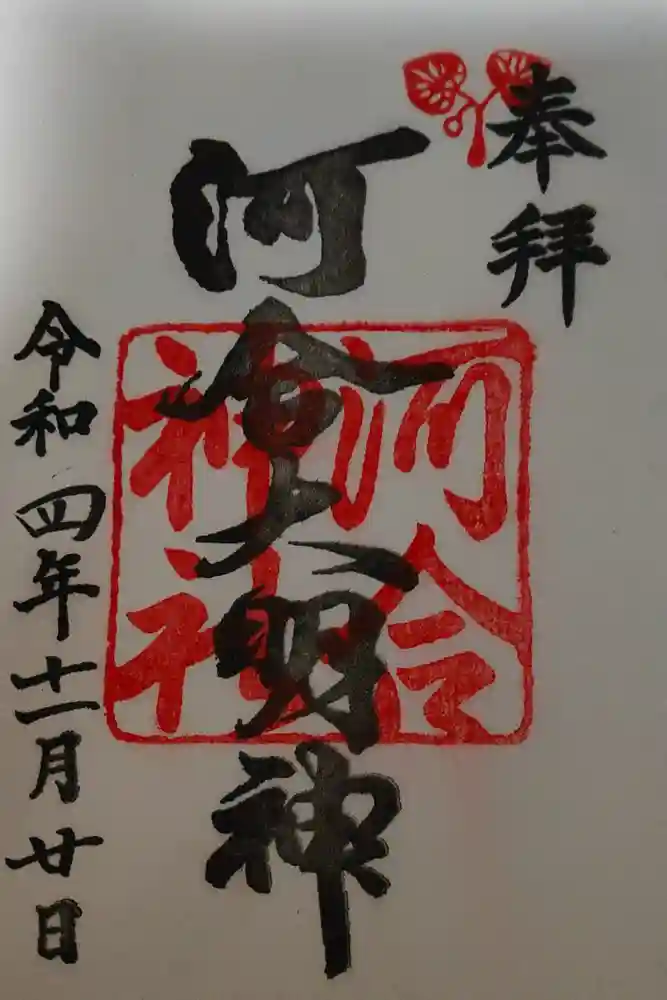 奉拝
河合大明神
河合
神社
令和四年十一月廿日